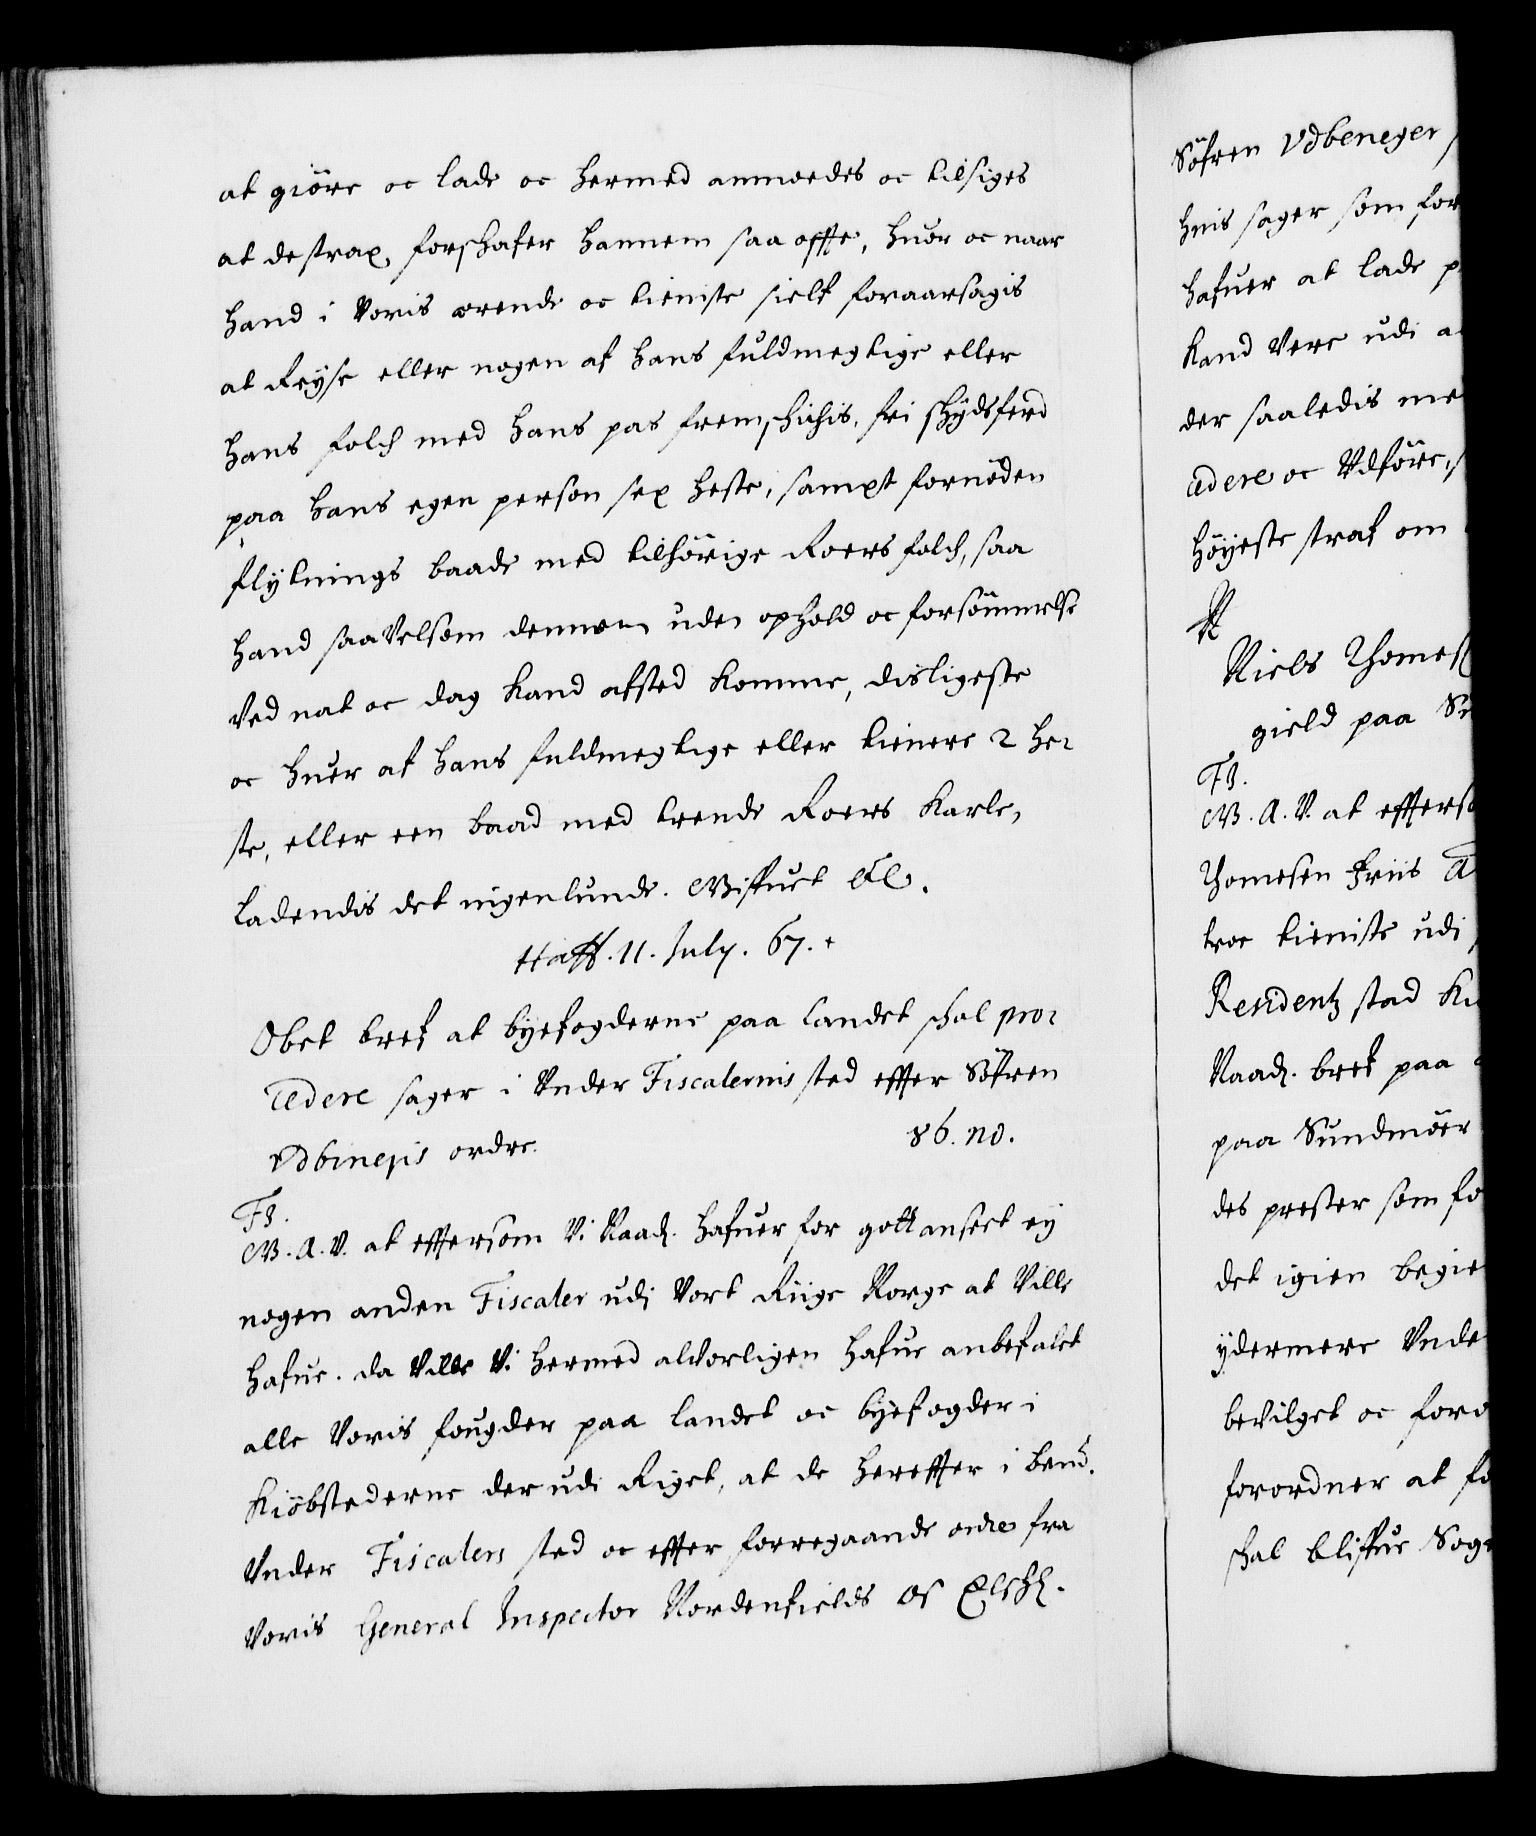 at giöre oc lade oc hermed anmodes oc tilsiges
at de strax, forschafer hannem saa offte, huor oc naar
hand i Voris ærende oc tieniste sielf foraarsagis
at Reyse eller nogen af hans fuldmegtige eller
hans folch med hans pas fremschichis, fri schydsferd
paa hans egen person sex heste, sampt fornöden
flytnings baade med tilhörige Roers folch, saa
hand saaVelsom dennem uden ophold oc forsömmelse
Ved nat oc dag kand afsted komme, disligeste
oc huer af hans fuldmegtige eller tienere 2 he-
ste, eller een baad med trende Roers karle,
ladendis det ingenlunde. Giffuet etc.
Haff. 11. July. 67.
Obet bref at byefogderne paa landet schal pro-
cedere sager i Under Fiscalernis sted effter Söfren
86. no.
F3.
G. A. V. at effterson Vi Naadl. hafuer for gott anseet ey
nogen anden Fiscaler udj Vort Riige Norge at Ville
hafue. da Ville Vi hermed alVorligen hafue anbefalet
alle Voris fougder paa landet oc byefogder i
Kiöbstederne der udi Riget, at de hereffter i bemd.
Under Fiscalers sted oc effter forregaaende ordre fra
Voris General Inspector Nordenfields Os Elschl.
Söfren
huis sager som for
hafuer at lade
kand Vere udi
der saaledis
cedere oc Udföre,
höyeste straf om
Niels Thomes
gield paa
F3.
G. A. V. at effterso
Thomesen Friis
troe tieniste udi
Residentz stad
Naadl. bref paa
paa Sundmöer
des prester som fo
det igien begie
ydermere Unde
beVilget oc foro
forordner at fo
schal bliffue Sog